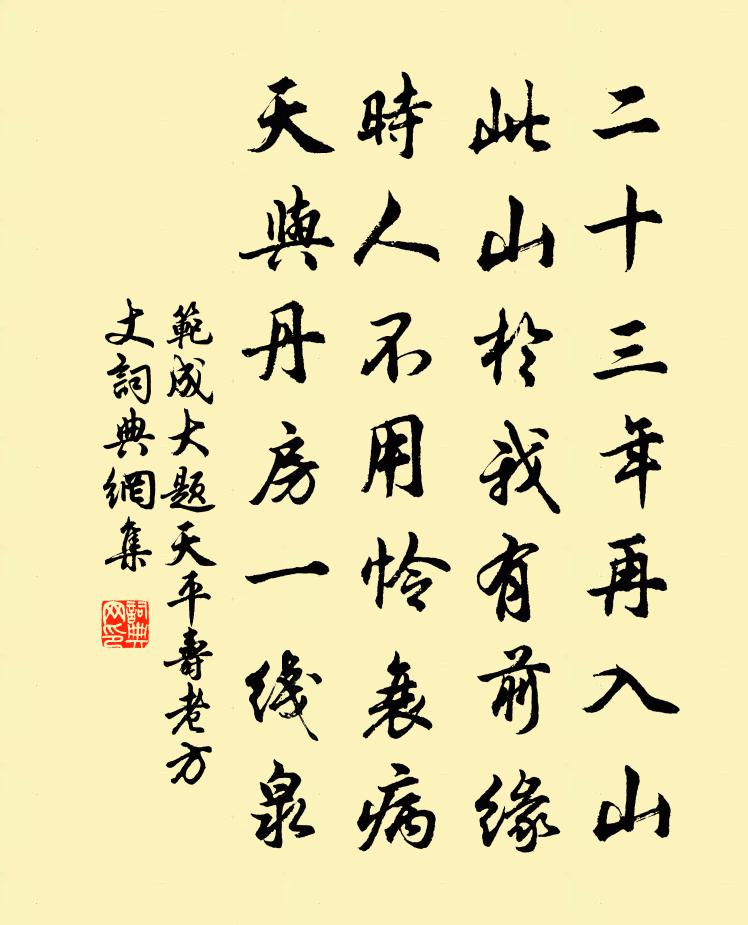 二十三年再入山
此山於我有前緣
時人不用怜衰病
天與丹房一綫泉
範成大題天平壽老方
丈詞典網集
詞典网印